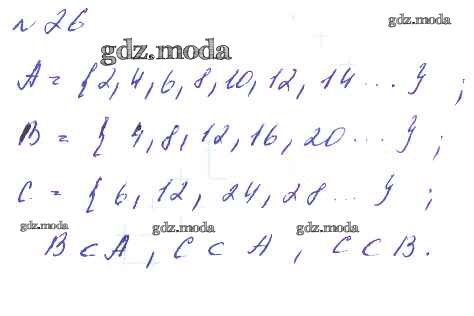 №26
gdz.moda
gdz.moda
A = {2, 4, 6, 8, 10, 12, 14 ... } ;
B = { 4, 8, 12, 16, 20 ... } ;
C = { 6, 12, 24, 28 ... } ;
gdz.moda
gdz.moda
gdz.moda
B ⊂ A , C ⊂ A , C ⊂ B .